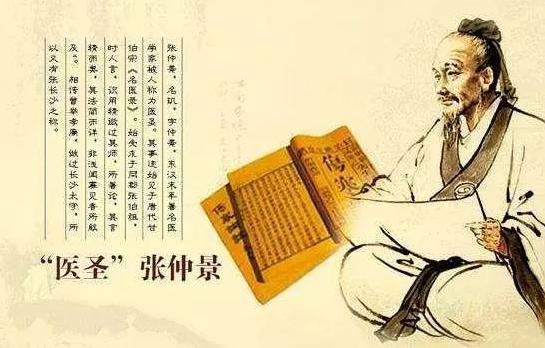 张仲景，名玑，字仲景，东汉末年著名医
学家被人称为医圣。其事迹始见于唐代甘
伯宗《名医录》。始受术于同郡张伯祖，
时人言，识用精微过其师，所著论，其言
精而奥，其法简而详，非浅闻寡见者所能
及》。相传曾举孝廉，做过长沙太守，所
以又有张长沙之称。
“医圣”张仲景